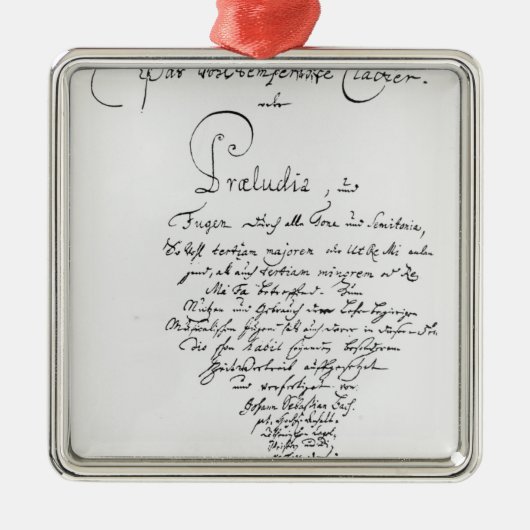 Das Wohltemperirte Clavier.
oder
Præludia, und
Fugen durch alle Tone und Semitonia,
So wohl tertiam majorem oder Ut Re Mi anlan
gend, als auch tertiam minorem oder Re
Mi Fa betreffend. Zum
Nutzen und Gebrauch der Lehrbegierigen
Musicalischen Jugend, als auch derer in diesem stu
dio schon habil seyenden besonderem
Zeitvertreib auffgesetzet
und verfertiget von
Johann Sebastian Bach.